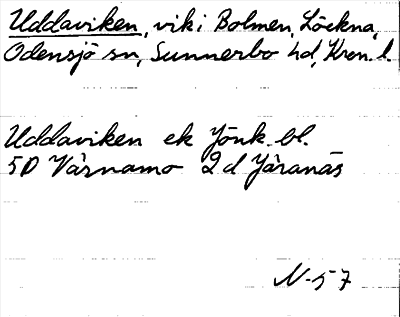 Uddaviken, vik i Bolmen, Löckna,
Odensjö sn, Sunnerbo hd, Kron. l.
Uddaviken ek Jönk. bl.
5D Värnamo 2 d Järanäs
N-57